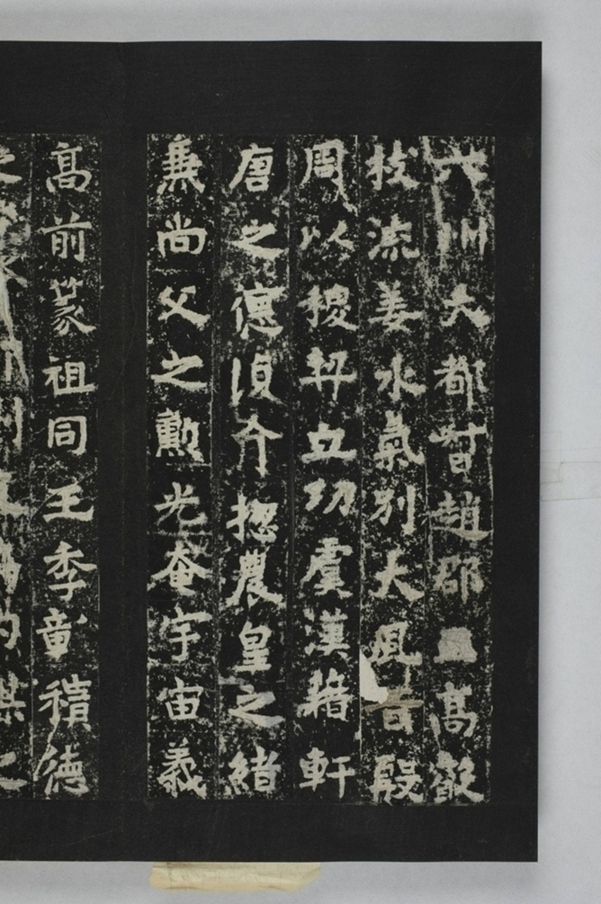 六州大都督趙郡王高叡
枝流姜水氣別大風昔殷
周以稷契立功虞漢藉軒
唐之德介揔農皇之緒
兼尚父之勳光奄宇宙義
高前篆祖同王季積德